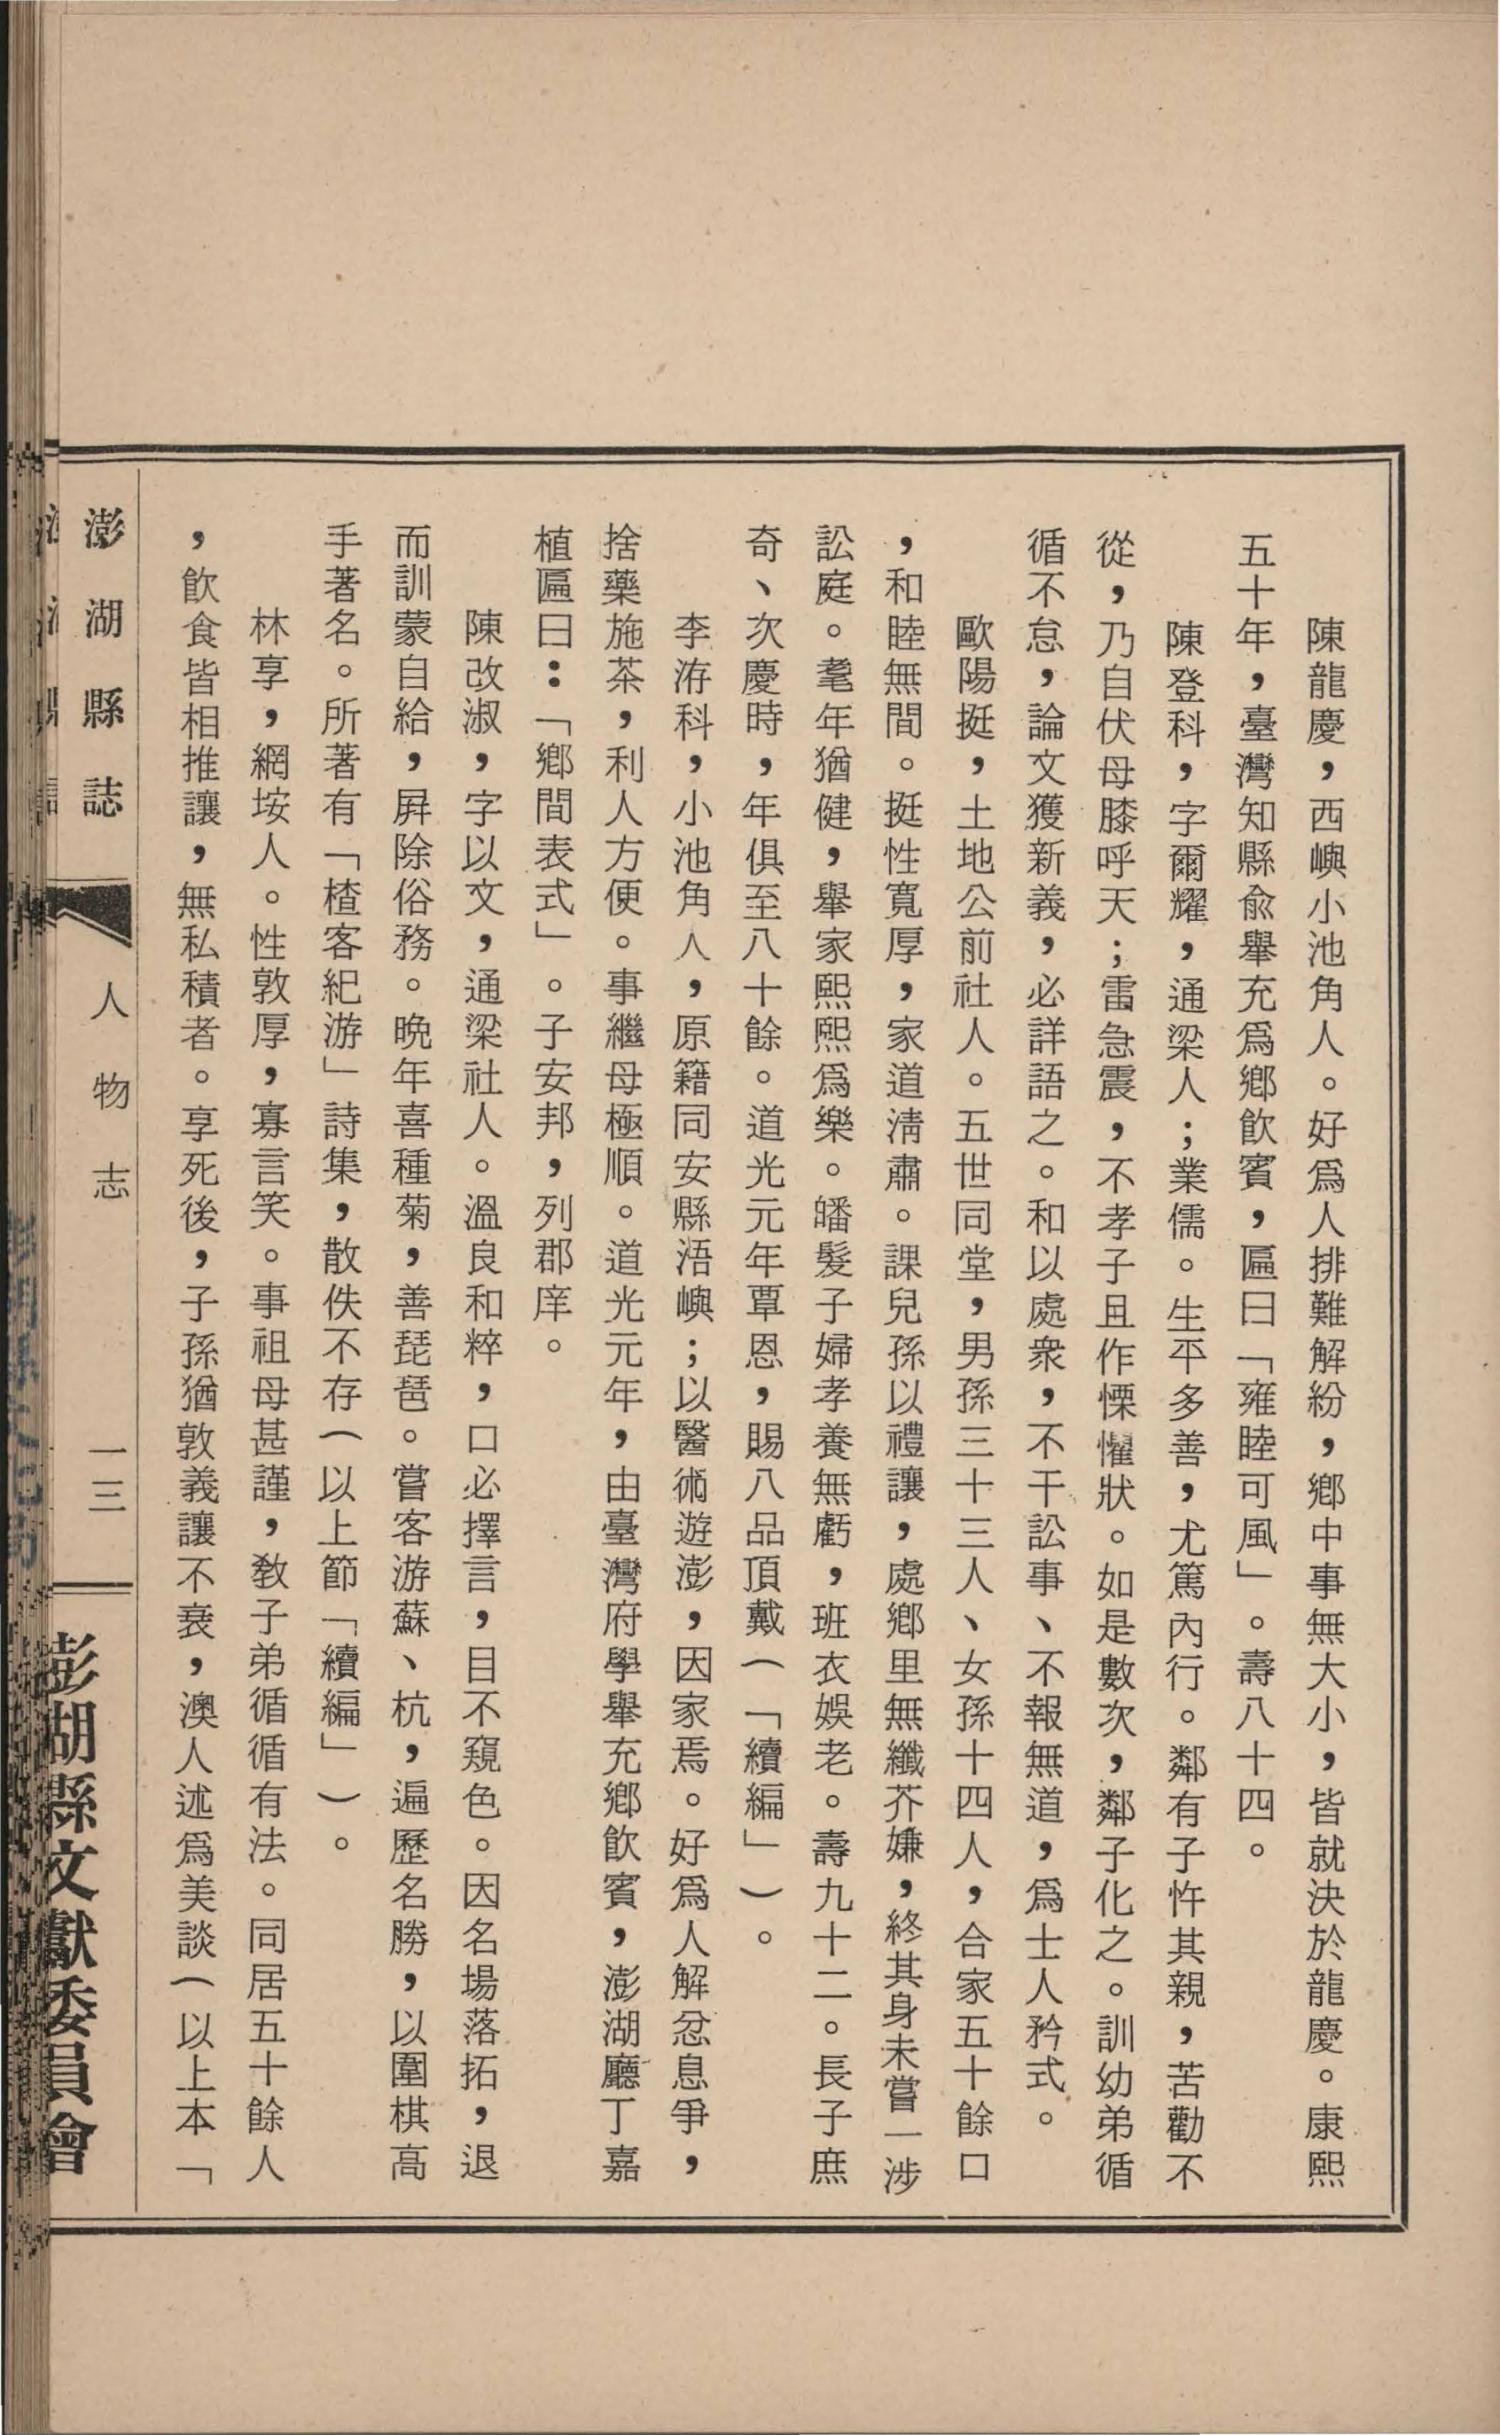 陳龍慶，西嶼小池角人。好爲人排難解紛，鄉中事無大小，皆就決於龍慶。康熙
五十年，臺灣知縣兪舉充爲鄉飮賓，匾曰「雍睦可風」。壽八十四。
陳登科，字爾耀，通梁人；業儒。生平多善，尤篤內行。鄰有子忤其親，苦勸不
從，乃自伏母膝呼天；雷急震，不孝子且作慄懼狀。如是數次，鄰子化之。訓幼弟循
循不怠，論文獲新義，必詳語之。和以處衆，不干訟事、不報無道，爲士人矜式。
歐陽挺，土地公前社人。五世同堂，男孫三十三人、女孫十四人，合家五十餘口
，和睦無間。挺性寬厚，家道淸肅。課兒孫以禮讓，處鄉里無纖芥嫌，終其身未嘗一涉
訟庭。耄年猶健，舉家熙熙爲樂。皤髮子婦孝養無虧，班衣娛老。壽九十二。長子庶
奇、次慶時，年俱至八十餘。道光元年覃恩，賜八品頂戴（「續編」）。
李洊科，小池角人，原籍同安縣浯嶼；以醫術遊澎，因家焉。好爲人解忿息爭，
捨藥施茶，利人方便。事繼母極順。道光元年，由臺灣府學舉充鄉飮賓，澎湖廳丁嘉
植匾曰：「鄉間表式」。子安邦，列郡庠。
陳改淑，字以文，通梁社人。溫良和粹，口必擇言，目不窺色。因名場落拓，退
而訓蒙自給，屏除俗務。晚年喜種菊，善琵琶。嘗客游蘇、杭，遍歷名勝，以圍棋高
手著名。所著有「楂客紀游」詩集，散佚不存（以上節「續編」）。
林享，網垵人。性敦厚，寡言笑。事祖母甚謹，敎子弟循循有法。同居五十餘人
，飮食皆相推讓，無私積者。享死後，子孫猶敦義讓不衰，澳人述爲美談（以上本「
澎湖縣誌
人物志
一三
澎湖縣文獻委員會